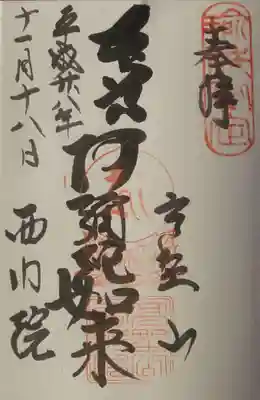 奉拝
高野山
本尊阿彌陀如来
平成廿八年
十一月十八日
西門院